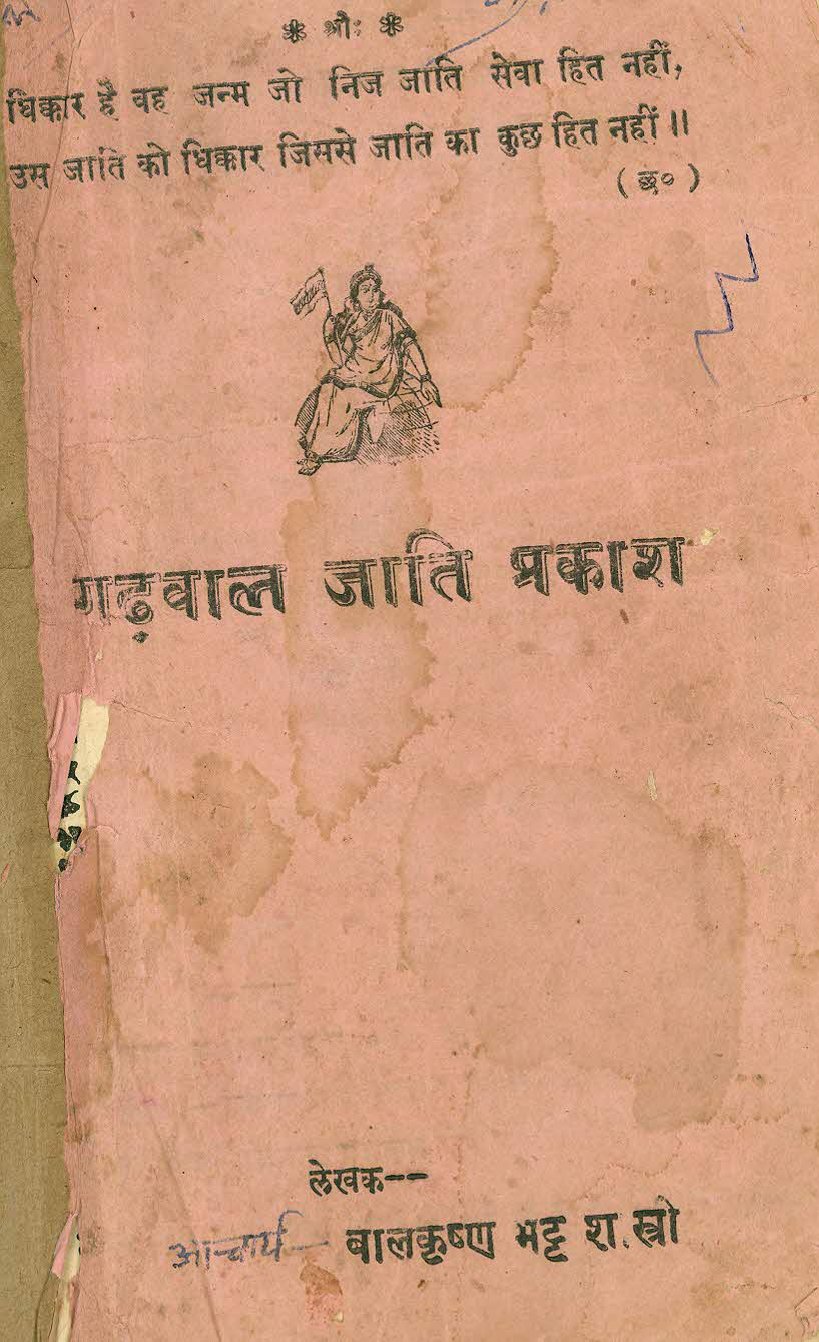 ❀ श्रीः ❀
धिक्कार है वह जन्म जो निज जाति सेवा हित नहीं,
उस जाति को धिक्कार जिससे जाति का कुछ हित नहीं ॥
गढ़वाल जाति प्रकाश
लेखक--
आचार्य – बालकृष्ण भट्ट श.स्त्री